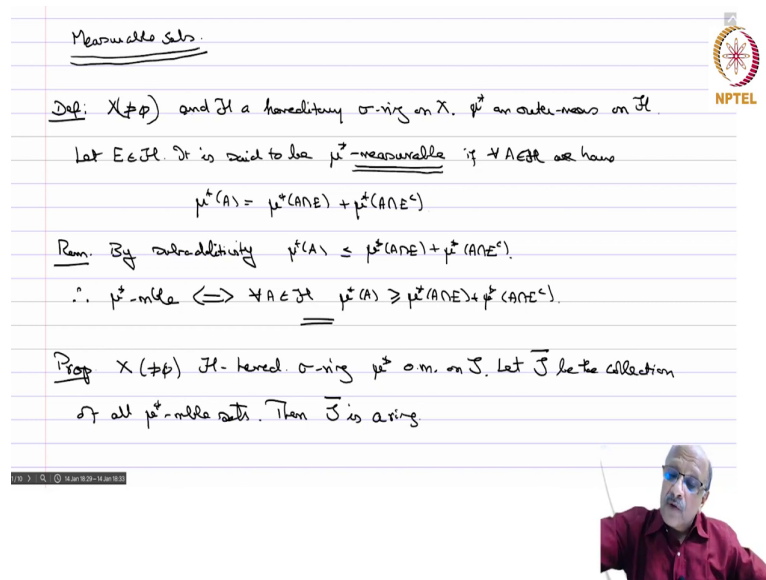 Measurable sets.
NPTEL
Def: X(≠φ) and H a hereditary σ-ring on X. μ* an outer-meas on H.
Let E∈H. It is said to be μ*-measurable if ∀A∈H we have
μ*(A) = μ*(A∩E) + μ*(A∩E^c)
Rem. By subadditivity μ*(A) ≤ μ*(A∩E) + μ*(A∩E^c).
∴ μ*-mble ⟺ ∀A∈H μ*(A) ≥ μ*(A∩E) + μ*(A∩E^c).
Prop X(≠φ) H-hered. σ-ring μ* o.m. on S. Let S̄ be the collection
of all μ*-mble sets. Then S̄ is a ring.
1/10 14 Jan 18:29-14 Jan 18:33